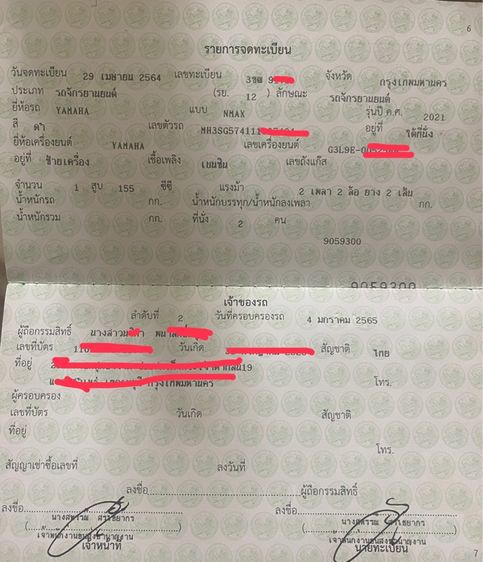 6
รายการจดทะเบียน
วันจดทะเบียน 29 เมษายน 2564 เลขทะเบียน 3ขฒ 9 จังหวัด กรุงเทพมหานคร
ประเภท รถจักรยานยนต์ (รย. 12 ) ลักษณะ รถจักรยานยนต์
ยี่ห้อรถ YAMAHA แบบ NMAX รุ่นปี ค.ศ. 2021
สี ดำ เลขตัวรถ MH3SG574111 อยู่ที่ ใต้ที่นั่ง
ยี่ห้อเครื่องยนต์ YAMAHA เลขเครื่องยนต์ G3L9E-0
อยู่ที่ ซ้ายเครื่อง เชื้อเพลิง เบนซิน เลขถังแก๊ส
จำนวน 1 สูบ 155 ซีซี แรงม้า 2 เพลา 2 ล้อ ยาง 2 เส้น
น้ำหนักรถ กก. น้ำหนักบรรทุก/น้ำหนักลงเพลา กก.
น้ำหนักรวม กก. ที่นั่ง 2 คน
9059300
9059300
เจ้าของรถ
ลำดับที่ 2 วันที่ครอบครองรถ 4 มกราคม 2565
ผู้ถือกรรมสิทธิ์ นางสาว
เลขที่บัตร 110 วันเกิด สัญชาติ ไทย
ที่อยู่ 2 19
กรุงเทพมหานคร โทร.
ผู้ครอบครอง
เลขที่บัตร วันเกิด สัญชาติ
ที่อยู่
โทร.
สัญญาเช่าซื้อเลขที่ ลงวันที่
ลงชื่อ ผู้ถือกรรมสิทธิ์
ลงชื่อ ลงชื่อ
เจ้าหน้าที่ นายทะเบียน
7